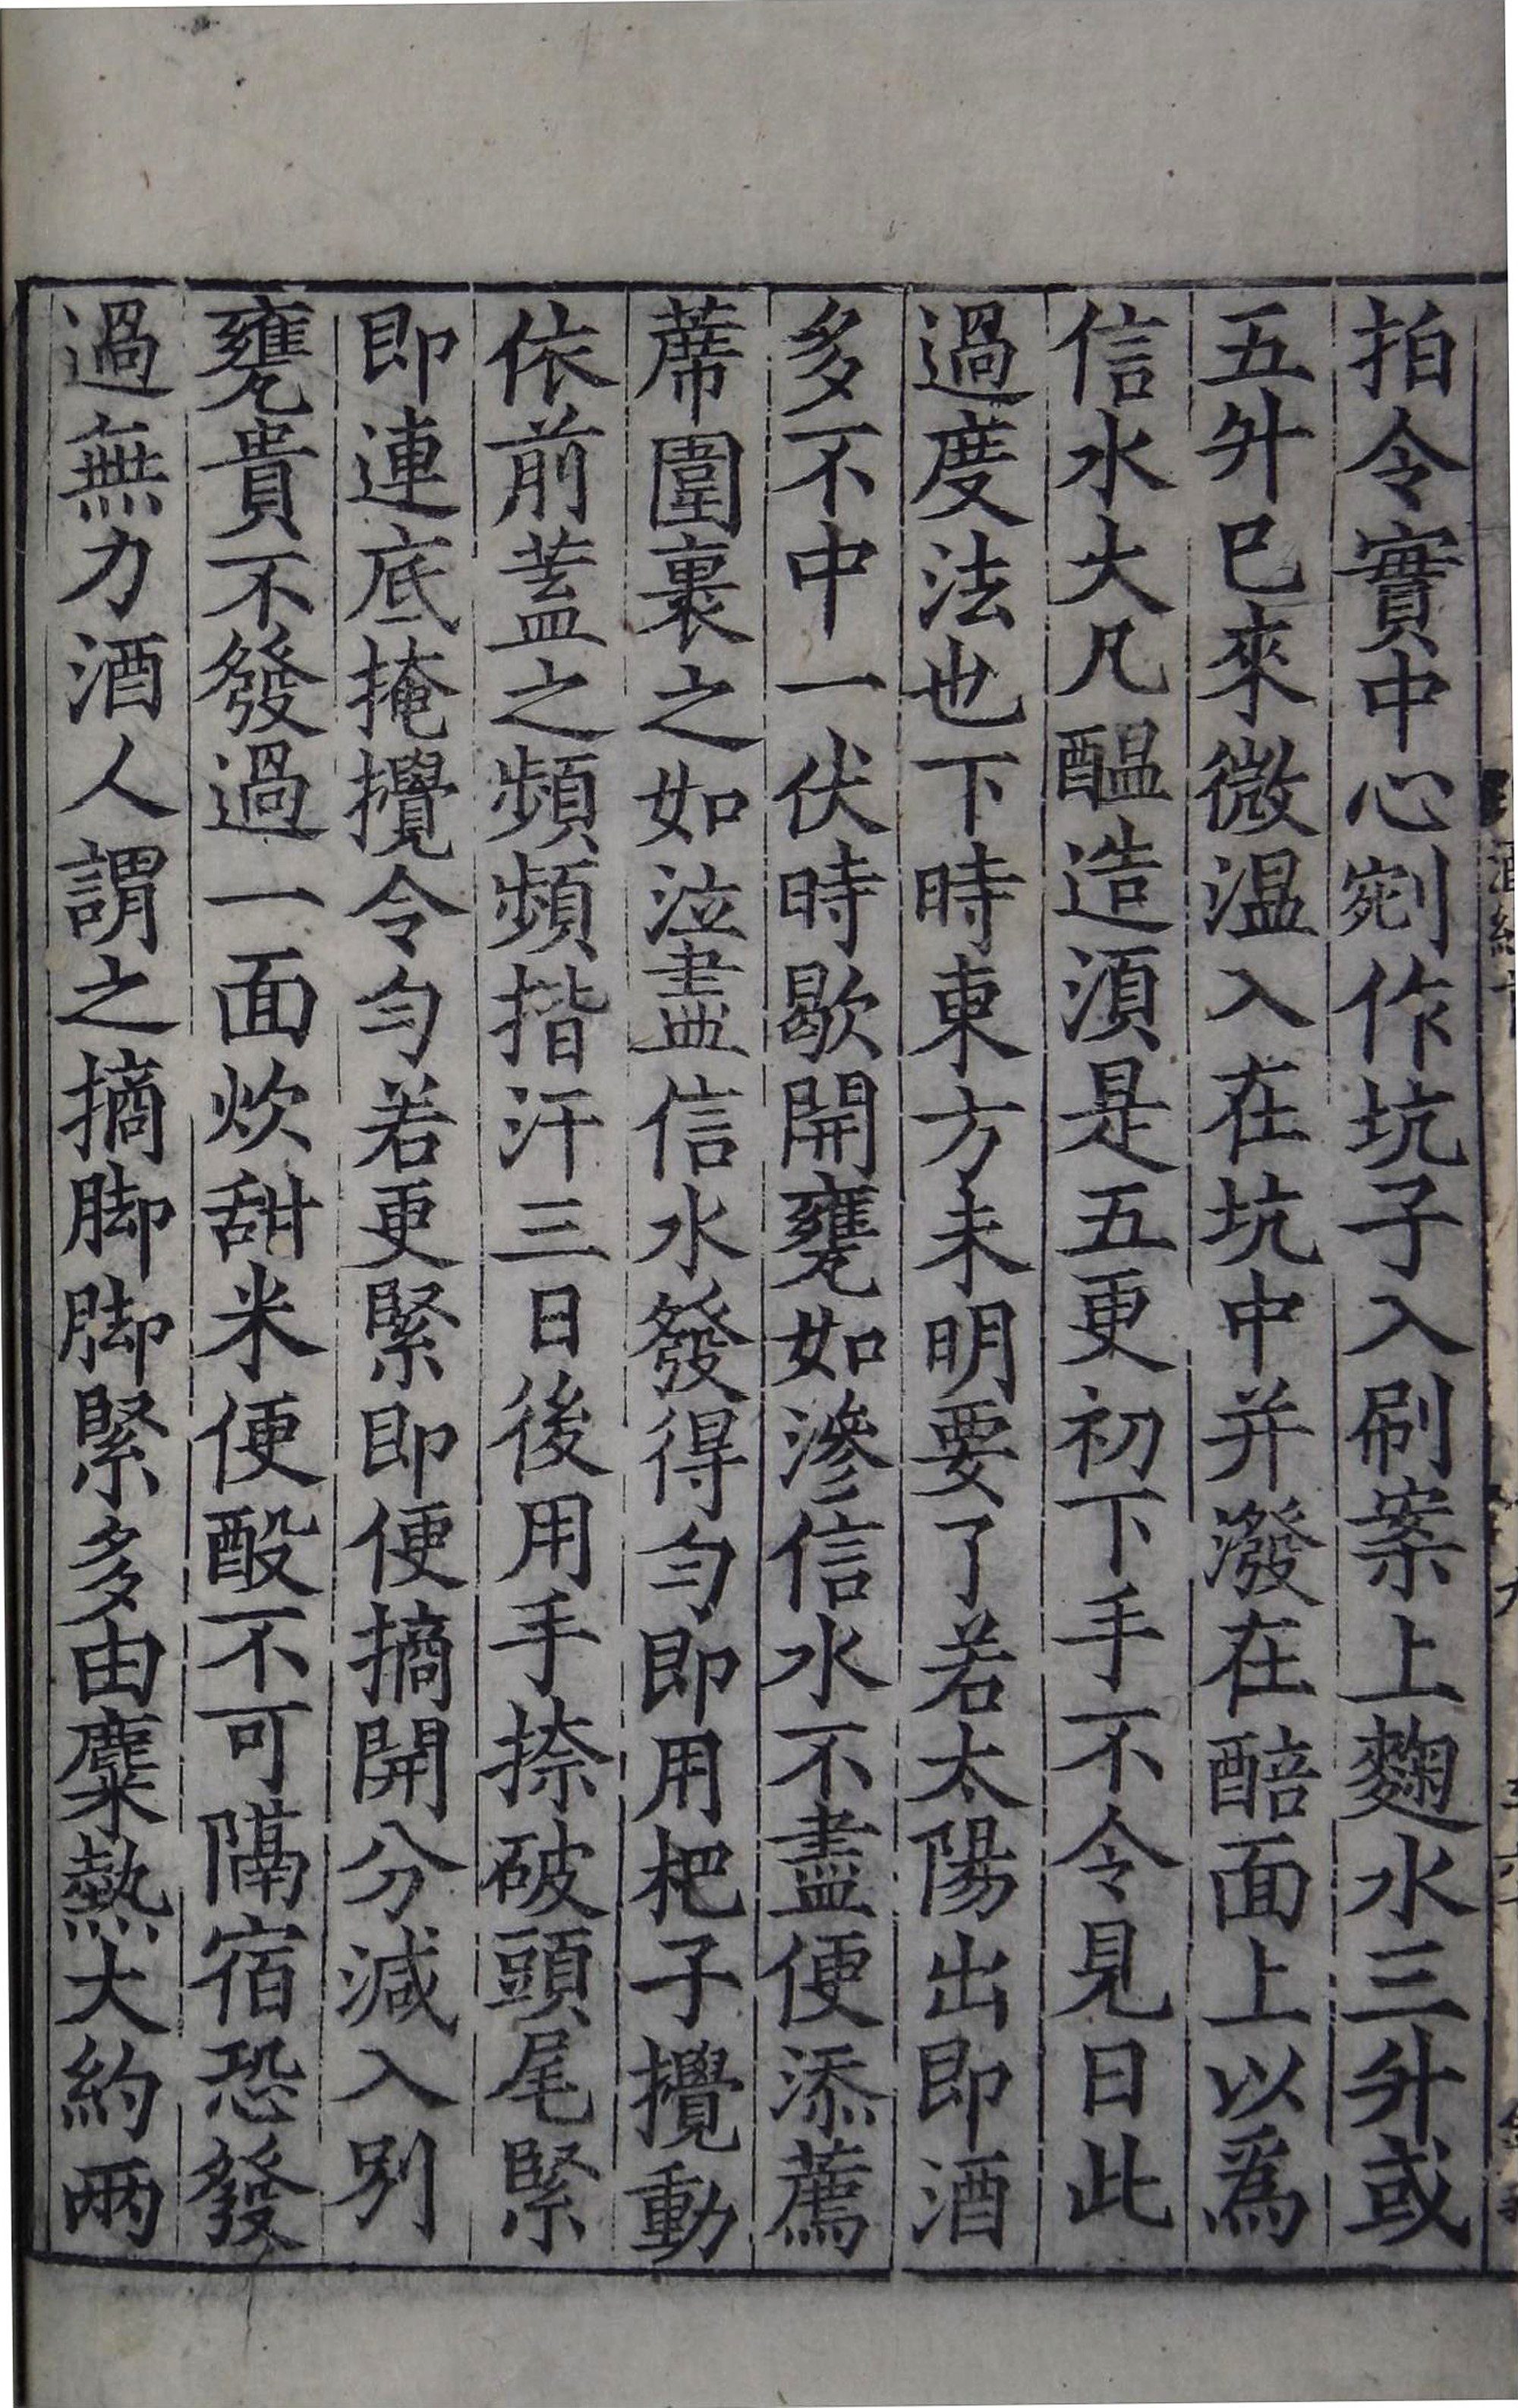 拍令實中心剜作坑子入刷案上麴水三升或
五升已來微温入在坑中并潑在醅面上以爲
信水大凡醖造湏是五更初下手不令見日此
過度法也下時東方未明要了若太陽出即酒
多不中一伏時歇開甕如滲信水不盡便添薦
蓆圍裹之如泣盡信水發得匀即用杷子攪動
依前葢之頻頻揩汗三日後用手捺破頭尾緊
即連底掩攪令匀若更緊即便摘開分減入别
甕貴不發過一面炊甜米便酘不可隔宿恐發
過無力酒人謂之摘脚脚緊多由麋熱大約兩